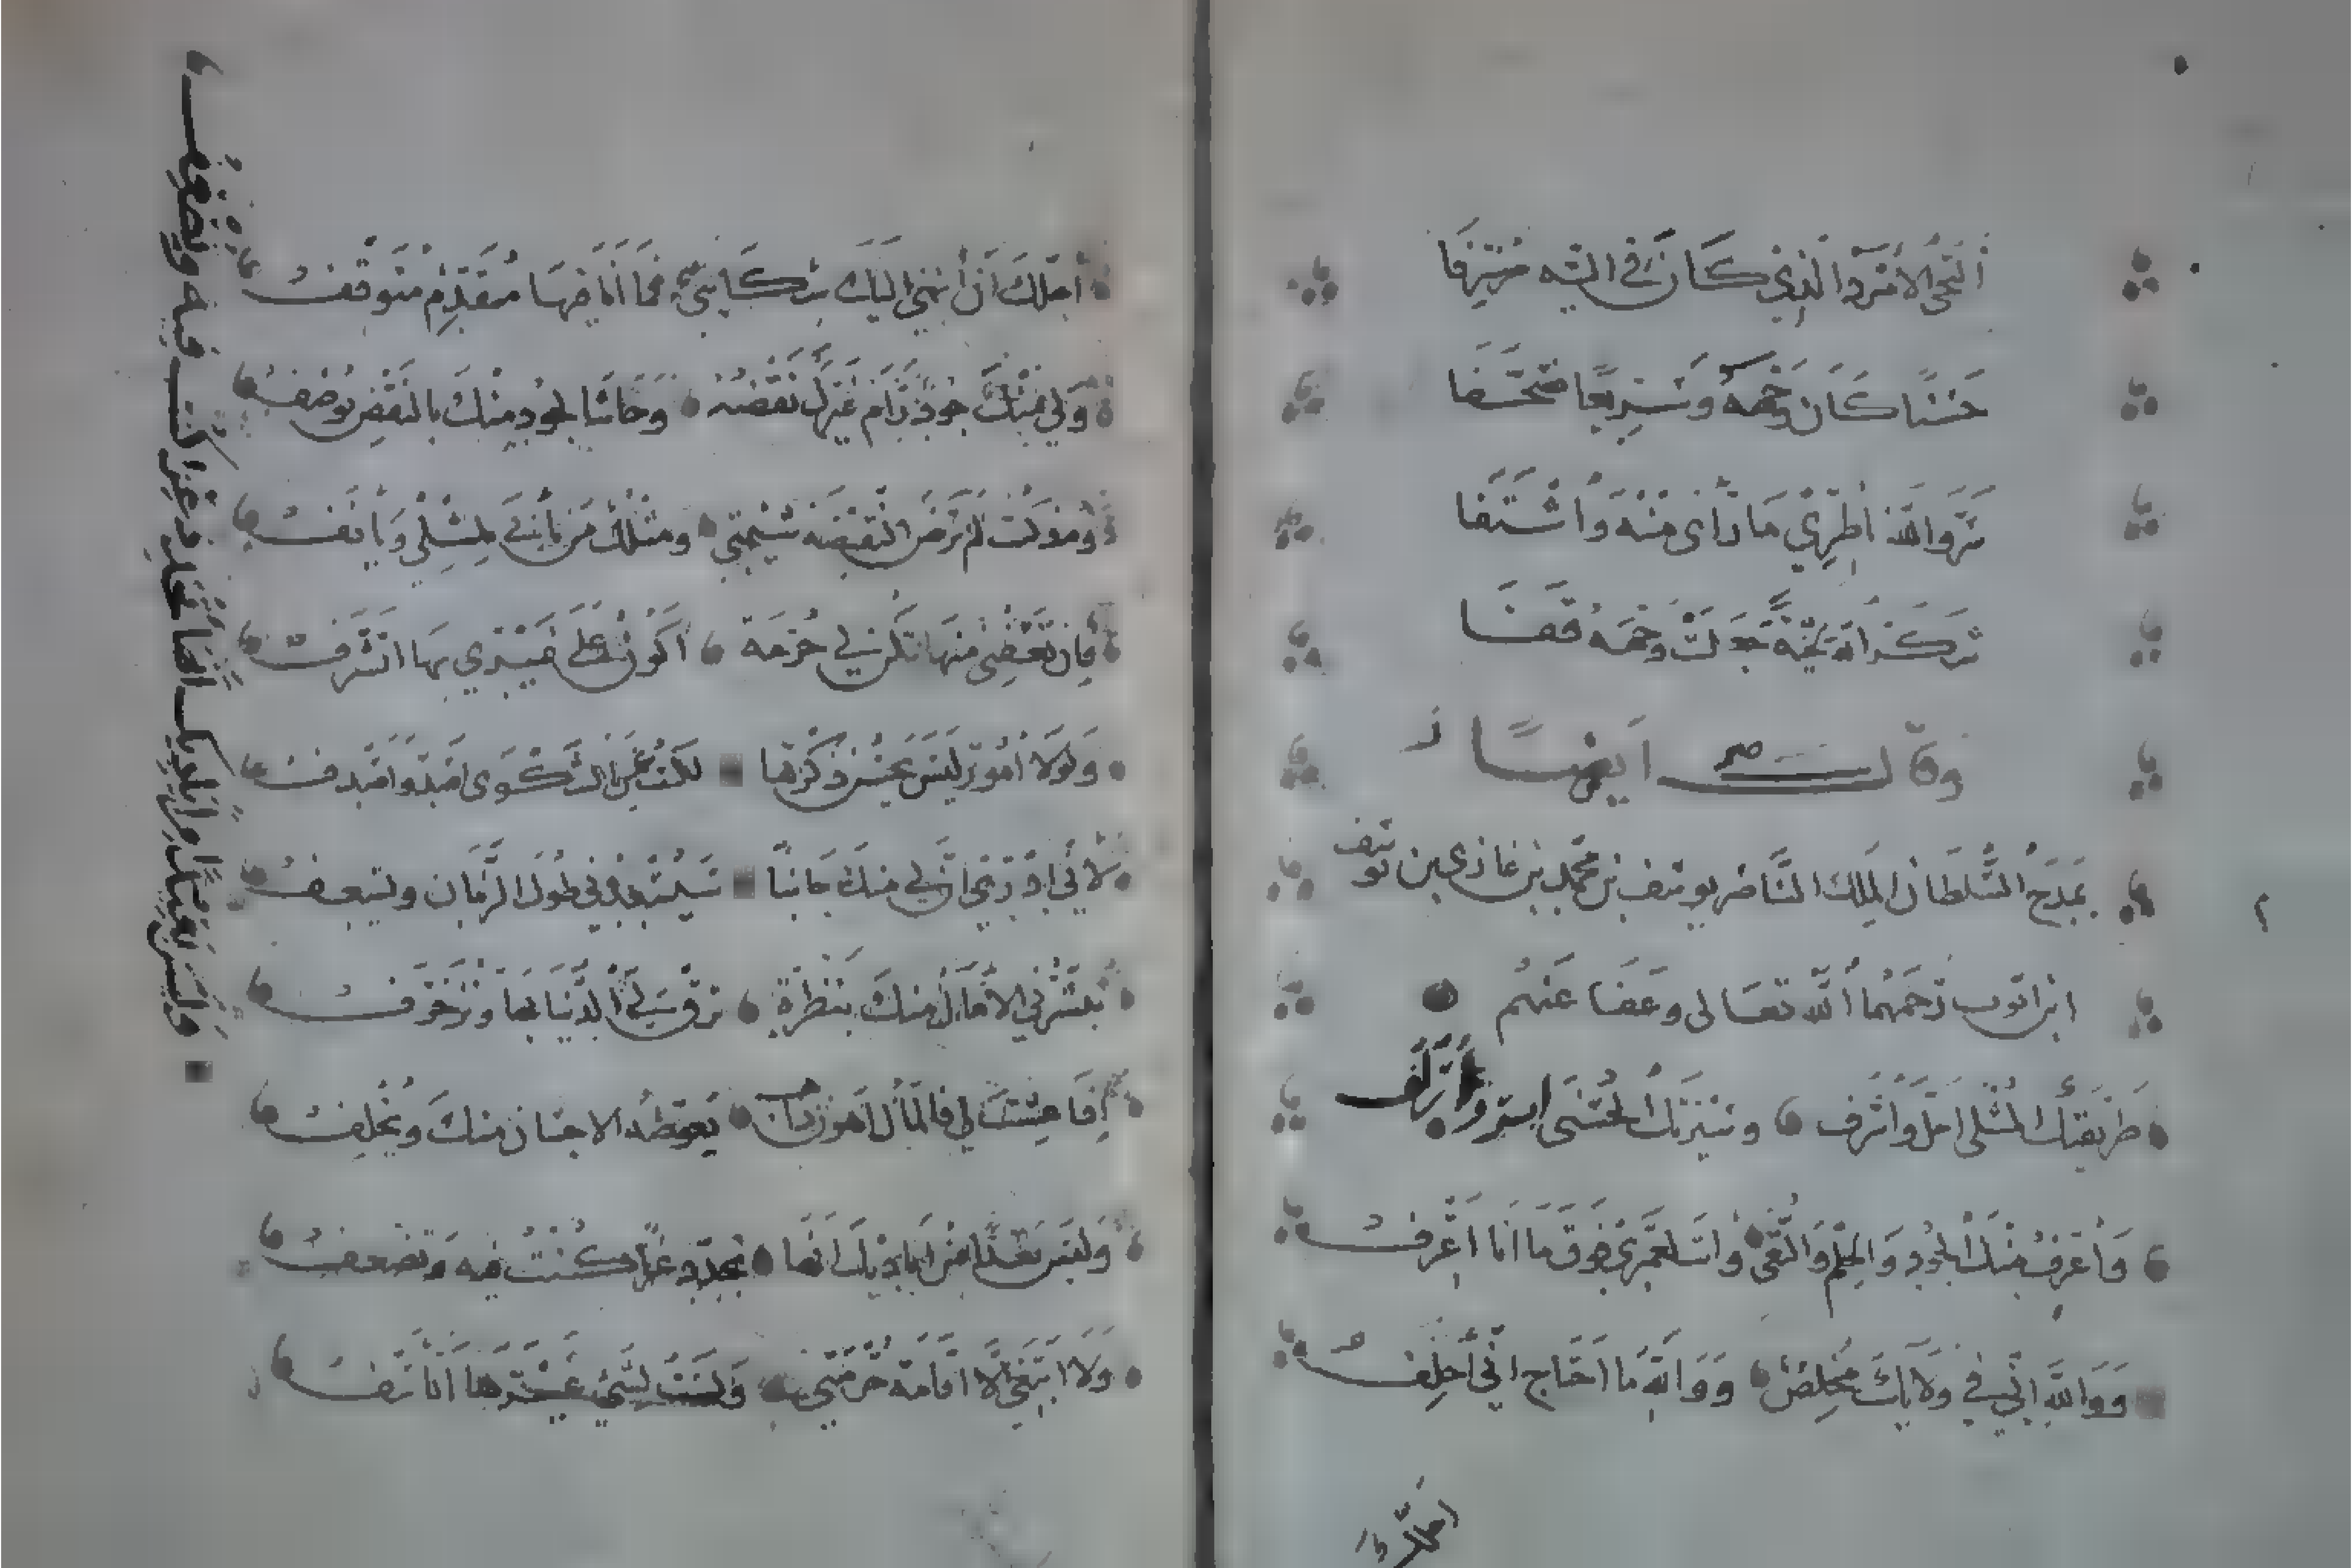 اَلتَحى الاَمْرَدُ الَّذِي كَانَ في التيه مُترَفَا
حَسَنًا كَانَ وَجْهُهُ وَسَرِيعًا تصحَّفَا
سَرَّ وَاللّه ناظِرِي مَا رَأى مِنْه وَاشْتَفَا
شَكَرَ اللّه لحيَةً جَعَلَتْ وَجْهَه قَفَا
وقال ايضًا
يَمدَحُ السُّلطَان الملِك النَّاصر يوسف بن محمّد بن غازي بن يوسف
ابن ايوب رَحمَهُما اللّه تعَالى وعَفَا عَنهُم
طَرِيقَتُكَ المُثْلَى اَجَلُّ وَاَشْرَف وسِيرَتُكَ الحُسْنَى ابَرُّ واَرْأَف
وَأَعرِفُ مِنْكَ الجُودَ وَالحِلْمَ وَالتُّقَى وَانتَ لعَمْرِي فَوقَ مَا انَا اَعْرِفُ
وَوَاللّهِ اِنّي في وَلَائِكَ مُخْلِصٌ وَوَاللّهِ مَا احتَاج انّي أَحْلِفُ
اُجلّك
أُجلّكَ اَن أُنهي اليك شكَايَتي فهَا اَنَا فيها مُقدِمٌ متَوقّفُ
وَلِي مِنْكَ جُودٌ رَامَ غَيْرُك نَقْصَهُ وَحَاشَا لجُودٍ مِنْكَ بالنَقْصِ يُوْصَفُ
ومُذ كنْتُ لَم تَرْضَ النَّقِيصَة شِيمَتي ومثْلُكَ مَن يَأْبَى لِمِثْلِي وَيَأنَفُ
فَاِن تعْفِني منها تَكُن لي حُرْمَة اَكُوْنُ عَلَى غَيْرِي بهَا اتَشَرَّفُ
وَلَوْلَا أمُورٌ لَيسَ يَحْسُن ذِكْرُهَا لكنتُ عَن الشَّكْوَى اَصُدُّ وَاَصْدِفُ
لِأَنّي أَدرِي انَّ لي منكَ جَانبًا سَيُسْعِدُني طُولَ الزَّمَان ويُسعِفُ
تُبَشِّرُني الآمَالُ مِنكَ بنَظْرَةٍ تُزَفُّ لي الدُّنيَا بهَا وَتُزَخْرَفُ
اِذَا عِشتَ لي فالمَالُ اَهون ذاهب يُعوّضُه الاحسَان منكَ ويُخلِفُ
وَلَيسَ بَعيدًا مِنْ ايَادِيكَ انَّهَا تُجَدِّدُ عِزًّا كُنْتُ فيه وَتُضعِفُ
وَلَا اَبتَغي الَّا اقَامَة حُرْمَتي وَلسْتُ لِشَيْءٍ غَيْرِهَا اَتَأَسَّفُ
وَليسَ بَعِيدًا من اياديك انَّهَا تُجَدِّد عزًا كنت فيه وتضعِفُ